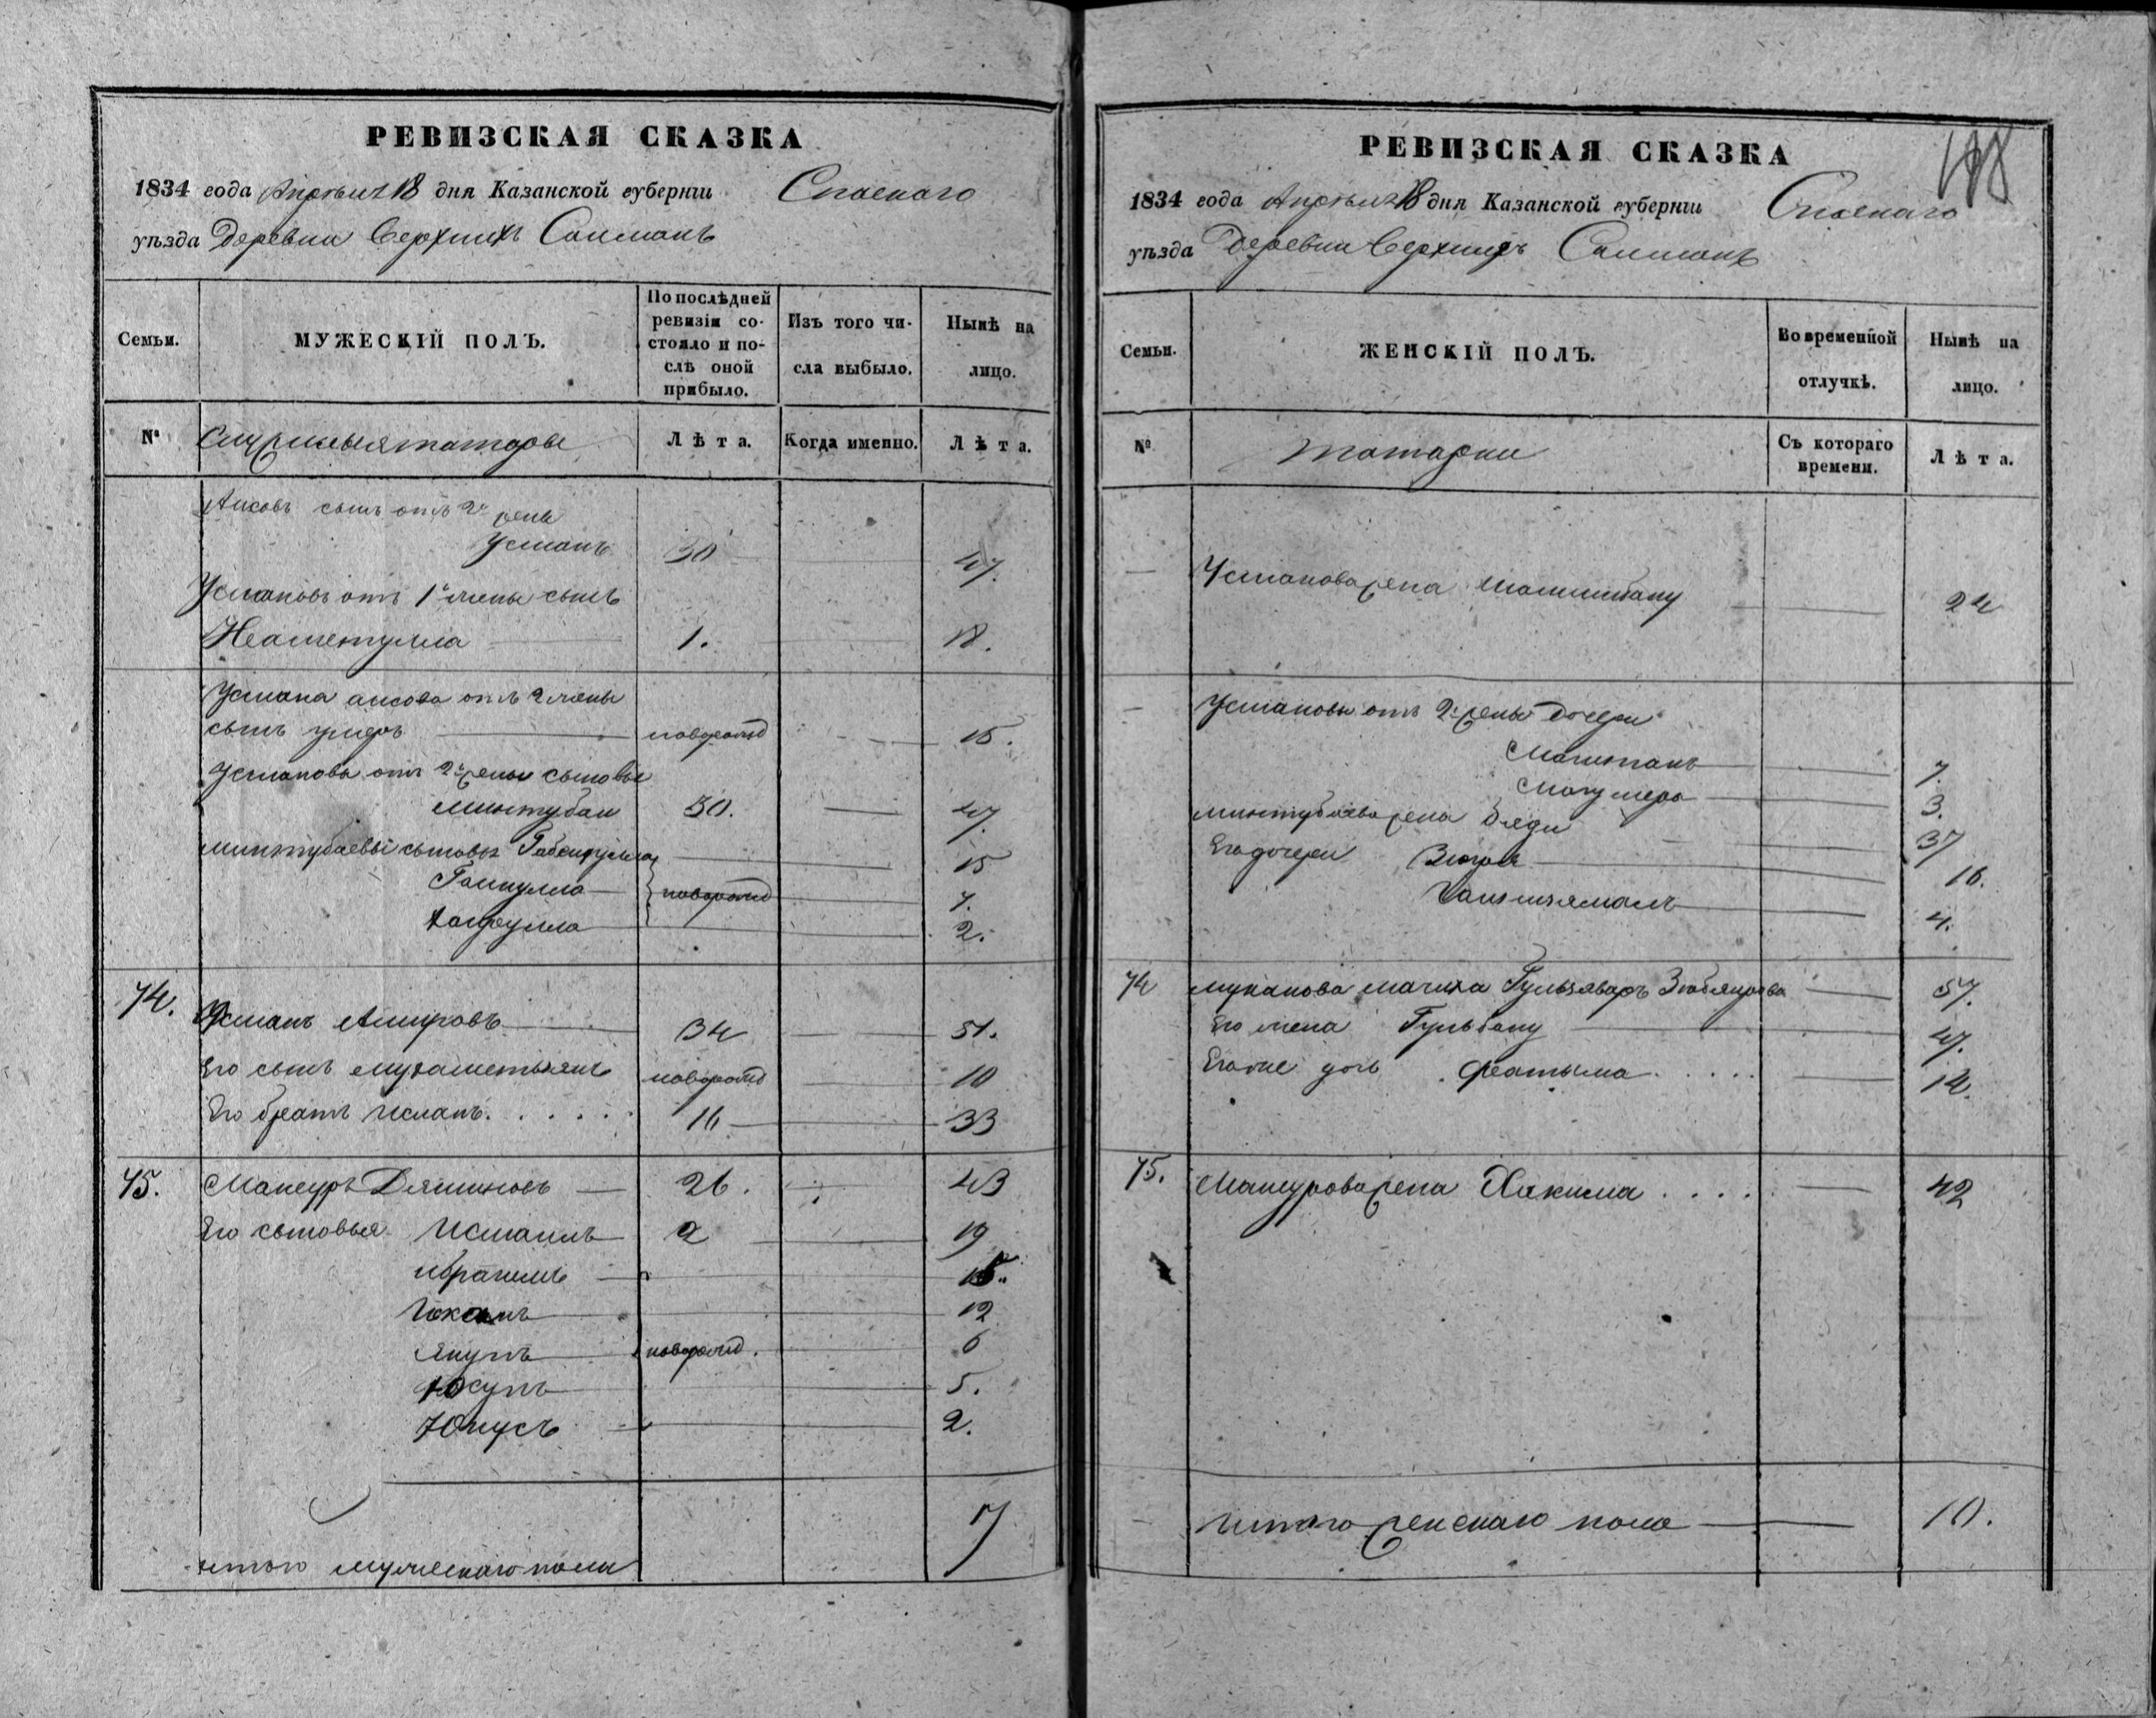 РЕВИЗСКАЯ СКАЗКА
1834 года Апрѣля 18 дня Казанской губерніи Спаскаго
уѣзда Деревни Верхнихъ Салманъ
Семьи.
МУЖЕСКІЙ ПОЛЪ.
По послѣдней ревизіи состояло и послѣ оной прибыло.
Изъ того числа выбыло.
Нынѣ на лицо.
№
татары
Лѣта.
Когда именно.
Лѣта.
Аисовъ сынъ отъ 2й жены
Усманъ 30 47.
Усмановъ отъ 1й жены сынъ
Неаметулла 1. 18.
Усмана аисова отъ 2 жены
сынъ умеръ новорожд 15.
Усманова отъ 2й жены сыновья
минтубай 30. 47.
минтубаевы сыновья 15
новорожд 7.
2.
74. Усманъ Амировъ 34 51.
Его сынъ мухаметьянъ новорожд 10
Его братъ 16 33
75. Мансуръ 26. 43
Его сыновья Исмаилъ 2 19
ибрагимъ 15.
12
якупъ новорожд. 6
Юсупъ 5.
Юнусъ 2.
итого мужескаго пола 17
РЕВИЗСКАЯ СКАЗКА
198
1834 года Апрѣля 18 дня Казанской губерніи Спаскаго
уѣзда Деревни Верхнихъ Салманъ
Семьи.
ЖЕНСКІЙ ПОЛЪ.
Во временной отлучкѣ.
Нынѣ на лицо.
№
татарки
Съ котораго времени.
Лѣта.
Усманова жена 24
Усмановы отъ 2й жены дочери
7.
3.
минтубаева жена 37
Его дочери 16.
4.
74 мачиха 57.
Его жена Гульбану 47.
Его же дочь Фатыма 14.
75. Мансурова жена Хакима 42
итого женскаго пола 10.